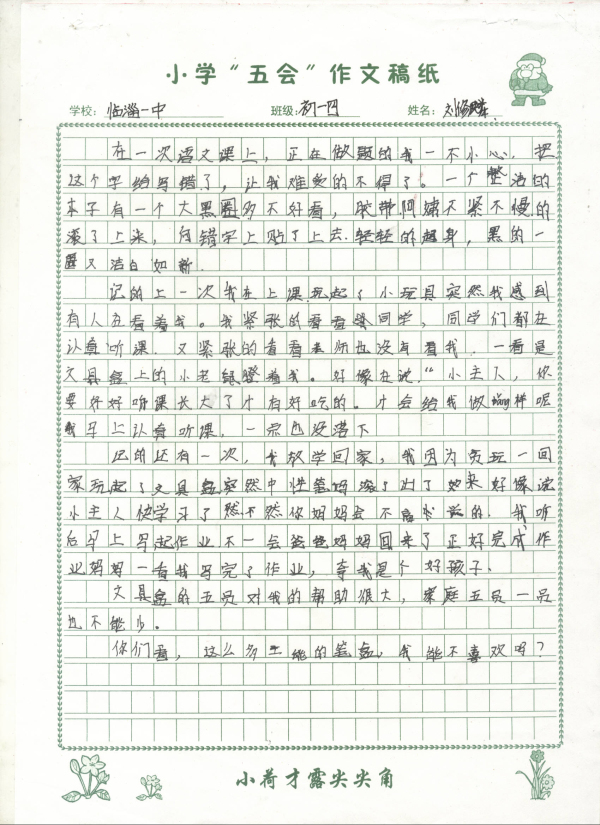 小学“五会”作文稿纸
学校：临淄一中 班级：初一四 姓名：刘修
在一次语文课上，正在做题的我一不小心，把
这个字给写错了，让我难受的不得了。一个整洁的
本子有一个大黑圈多不好看，胶带阿姨不紧不慢的
滚了上来，向错字上贴了上去.轻轻的起身，黑的一
圈又洁白如新.
记的上一次我在上课玩起了小玩具突然我感到
有人在看着我。我紧张的看看 同学，同学们都在
认真听课.又紧张的看看老师也没有看我，一看是
文具盒上的小老鼠瞪着我。好像在说：“小主人，你
要好好听课长大了才有好吃的。才会给我做 样呢
我马上认真听课，一点也没落下
记的还有一次，我放学回家，我因为贪玩一回
家玩起了文具盒突然中性笔妈滚了出了 来好像说
小主人快学习了 不然你妈妈会不高兴 的.我听
后马上写起作业不一会爸爸妈妈回来了正好完成作
业妈妈一看我写完了作业，夸我是个好孩子.
文具盒的五员对我的帮助很大，家庭五员一员
也不能少。
你们看，这么多 能的笔盒，我能不喜欢吗？
小荷才露尖尖角